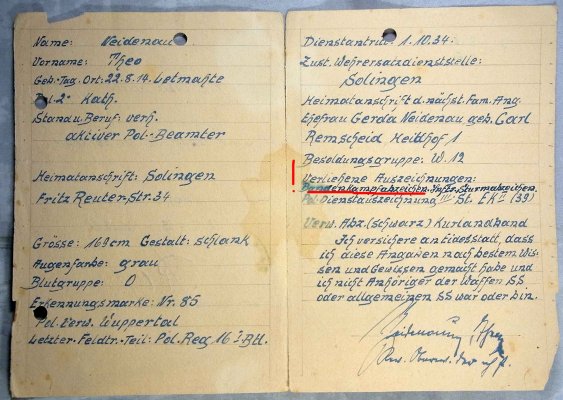 Name: Neidenau
Vorname: Theo
Geb.-Tag. Ort: 22.8.14. Letmahte
Rel.: Kath.
Stand u. Beruf: verh.
aktiver Pol-Beamter
Heimatanschrift: Solingen
Fritz Reuter-Str. 34
Grösse: 169cm Gestalt: schlank
Augenfarbe: grau
Blutgruppe: O
Erkennungsmarke: Nr. 85
Pol. Verw. Wuppertal
Letzter-Feldtr.-Teil: Pol. Reg 16 I Btl.
Dienstantritt: 1.10.34.
Zust. Wehrersatzdienststelle:
Solingen
Heimatanschrift d. nächst. Fam. Ang.
Ehefrau Gerda Neidenau geb. Carl
Remscheid Heidhof 1
Besoldungsgruppe: W. 12
Verliehene Auszeichnungen:
Bandenkampfabzeichen. Inftr. Sturmabzeichen.
Pol. Dienstauszeichnung St. EK II (39)
Verw. Abz. (schwarz) Kurlandband
Ich versichere an Eidesstatt, dass
ich diese Angaben nach bestem Wis-
sen und Gewissen gemacht habe und
ich nicht Anhöriger der Waffen SS
oder allgemeinen SS war oder bin.
Neidenau, Theo